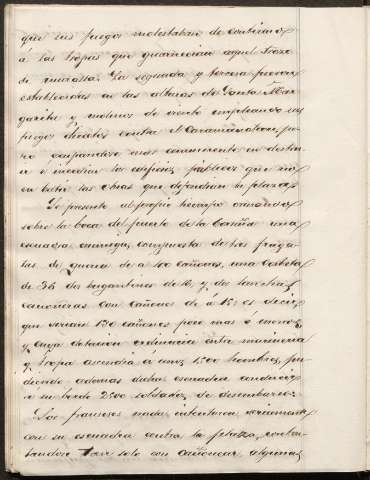 que sus fuegos molestaban de continuo
á las tropas que guarnecian aquel trozo
de muralla. La segunda y tercera fueron
establecidas en las alturas de Santa Mar-
garita y molinos de viento empleando sus
fuegos directos contra el Caramanchon, pe-
ro ocupandose mas
é incendiar los edificios públicos que no
en batir las obras que defendian la plaza.
Se presentó al propio tiempo
sobre la boca del puerto de la Coruña una
escuadra enemiga, compuesta de dos fraga-
tas de guerra de á 100 cañones, una corbeta
de 36 dos bergantines de 16, y dos lanchas
cañoneras con cañones de á 18 es decir
que serian 130 cañones poco mas ó menos
y cuya dotacion ordinaria entre marineria
y tropa ascendia á unos 1500 hombres, pu-
diendo ademas dicha escuadra conducir
á su bordo 2500 soldados de desembarco.
Los franceses nada intentaron seriamente
con su escuadra contra la plaza, conten-
tandose tan solo con cañonear, algunas